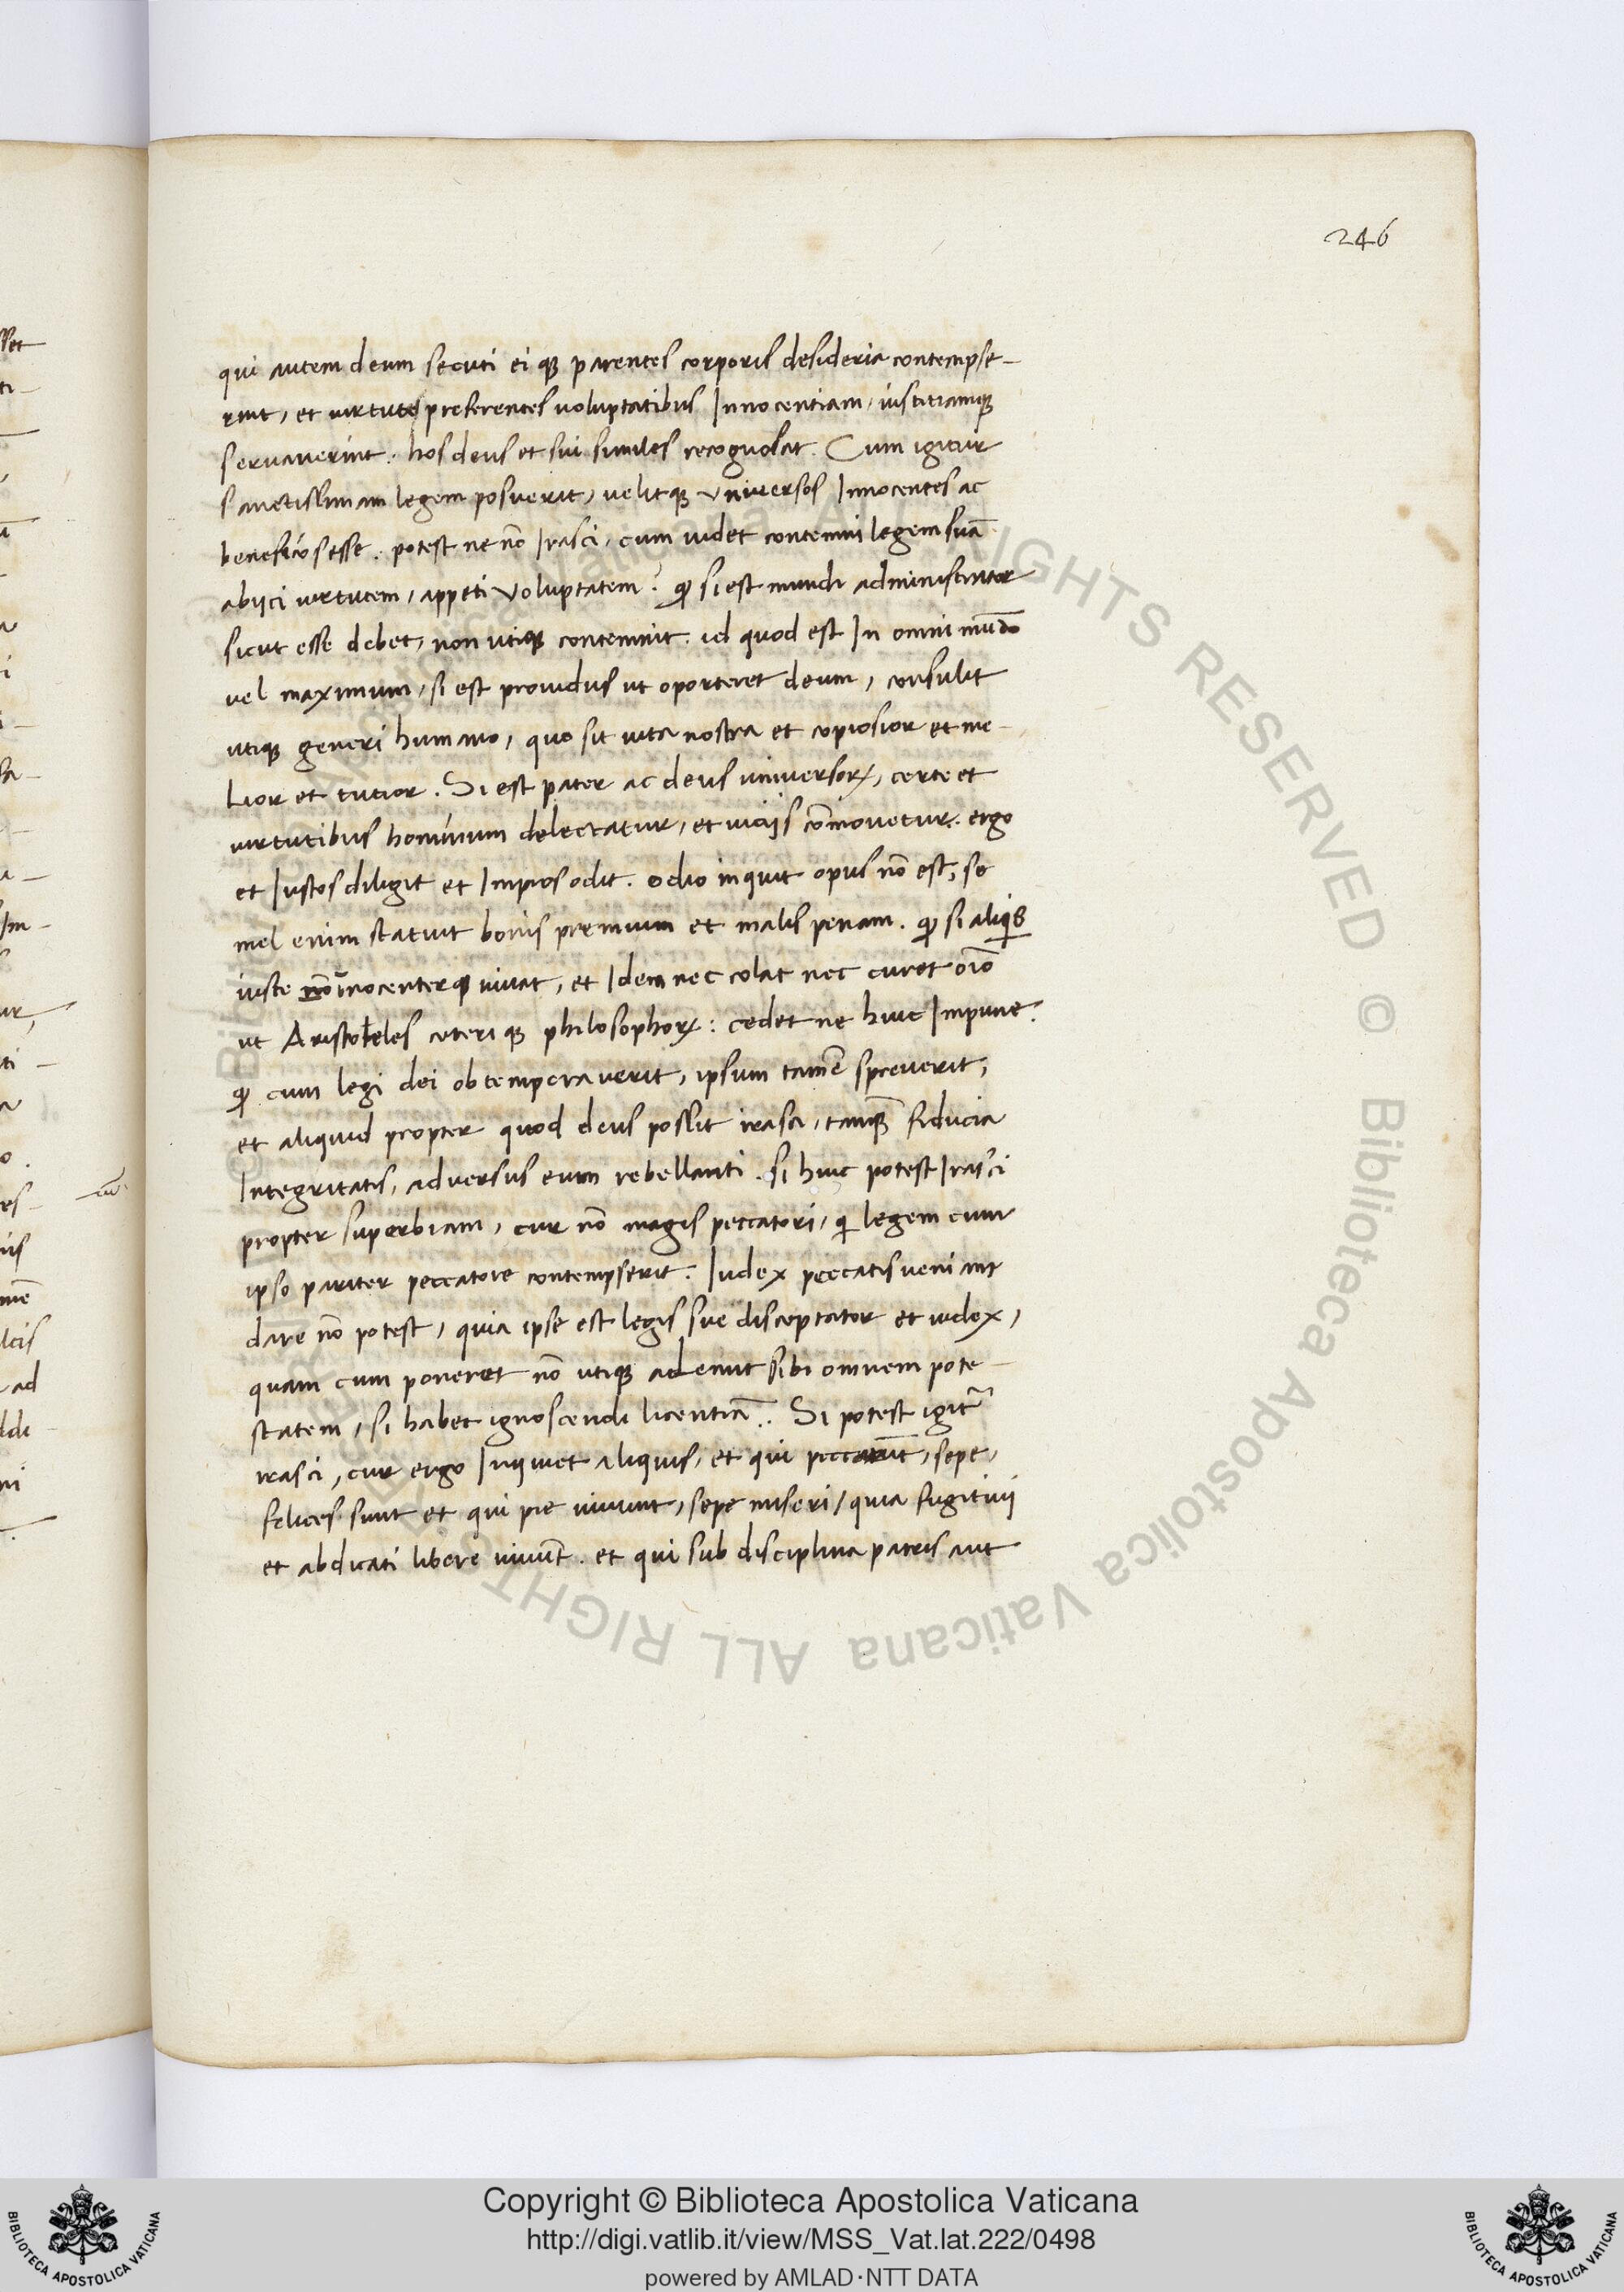 246
qui autem deum secuti ei qꝫ parentes corporis desideria contempse-
rint, et virtutes preferentes voluptatibus Innocentiam, iustitiamqꝫ
servaverint: hos deus et sui similes recognoscat. Cum igitur
sanctissimam legem posuerit, velitqꝫ Universos Innocentes ac
beneficos esse. potest ne nō Irasci, cum videt contemni legem suā
abijci virtutem, appeti Voluptatem? qđ si est mundi administrator
sicut esse debet, non utiqꝫ contemnit. id quod est In omni mūdo
vel maximum, si est providus ut oporteret deum, consulit
utiqꝫ generi humano, quo sit vita nostra et copiosior et me-
lior et tutior. Si est pater ac deus universoꝝ, certe et
virtutibus hominum delectatur, et vicijs cōmovetur. ergo
et Iustos diligit et Impios odit. odio inquit opus nō est, se
mel enim statuit bonis premium et malis penam. qđ si aliqis
iuste nō īnocenterqꝫ vivat, et Idem nec colat nec curet oīo
ut Aristoteles ceteri qꝫ philosophoꝝ: cedet ne huic Impune?
qđ cum legi dei obtemperaverit, ipsum tamē spreverit,
et aliquid propter quod deus possit irasci, tamqꝫ fiducia
Integritatis, adversus eum rebellanti. si huic potest Irasci
propter superbiam, cur nō magis peccatori, qi legem cum
ipso pariter peccatore contempserit. Iudex peccatis veniam
dare nō potest, quia ipse est legis sue disceptator et iudex,
quam cum poneret nō utiqꝫ ademit sibi omnem pote-
statem, si habet ignoscendi licentiā. Si potest igitᷣ
irasci, cur ergo Inquiet aliquis, et qui peccat, sepe,
felices sunt et qui pie vivunt, sepe miseri / quia fugitivi
et abdicati libere vivūt. et qui sub disciplina patris aut
Copyright © Biblioteca Apostolica Vaticana
http://digi.vatlib.it/view/MSS_Vat.lat.222/0498
powered by AMLAD·NTT DATA